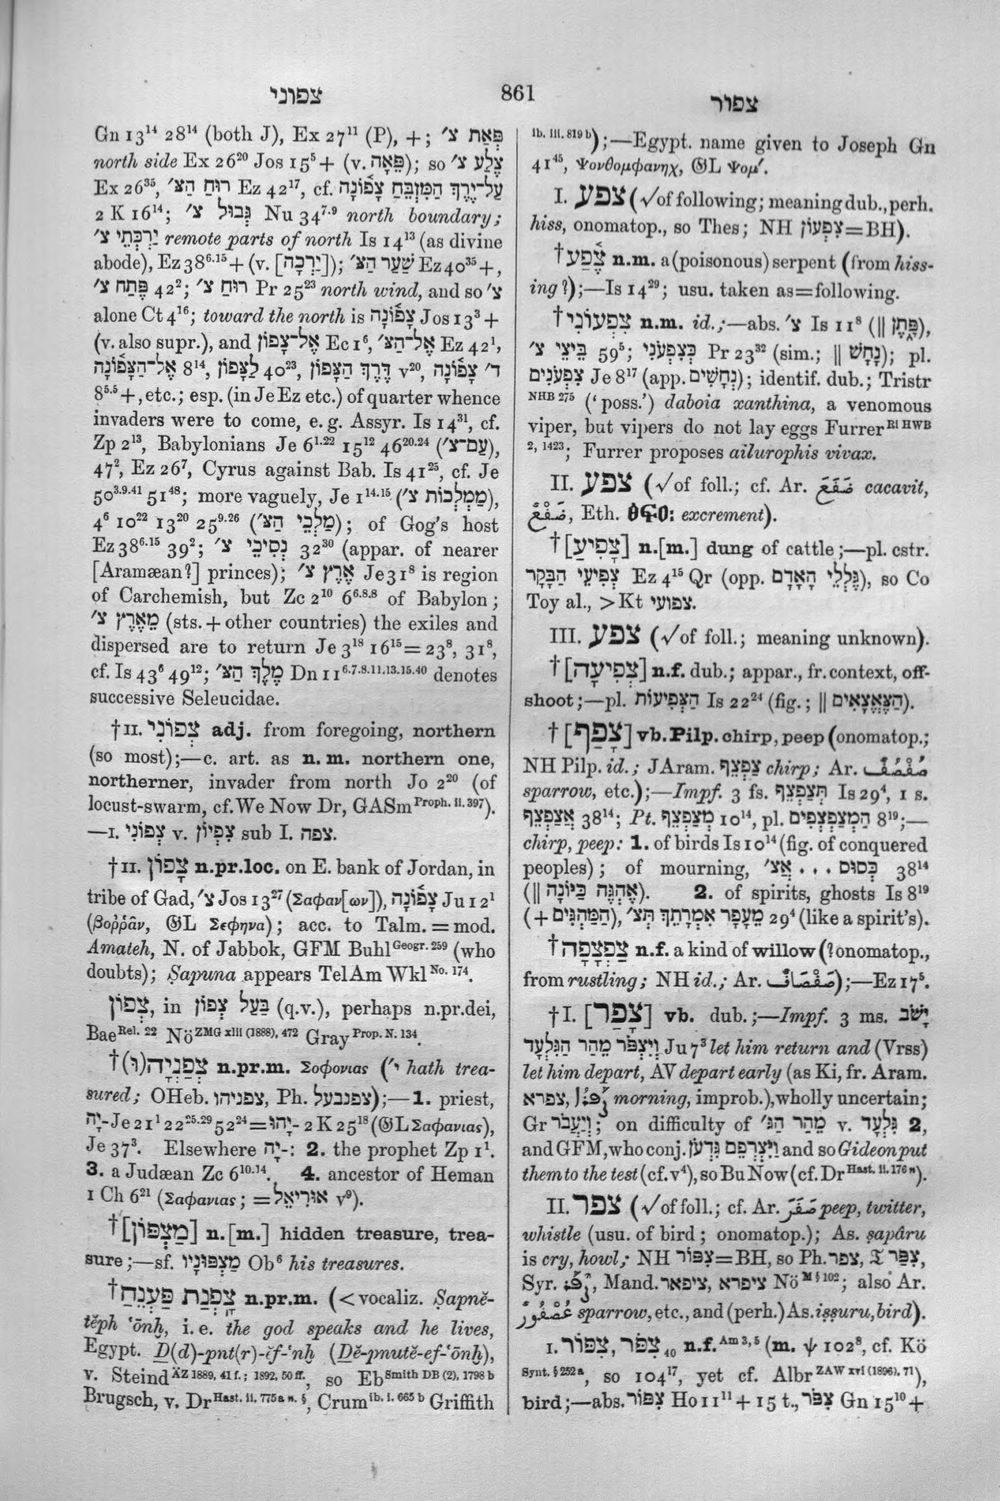 צפוני
861
צפור
Gn 13¹⁴ 28¹⁴ (both J), Ex 27¹¹ (P), +; פְּאַת צ׳
north side Ex 26²⁰ Jos 15⁵ + (v. פֵּאָה); so צֶלַע צ׳
Ex 26³⁵, רוּחַ הַצּ׳ Ez 42¹⁷, cf. עַל־יֶרֶךְ הַמִּזְבֵּחַ צָפוֹנָה
2 K 16¹⁴; גְּבוּל צ׳ Nu 34⁷·⁹ north boundary;
יַרְכְּתֵי צ׳ remote parts of north Is 14¹³ (as divine
abode), Ez 38⁶·¹⁵ + (v. [יַרְכָה]); שַׁעַר הַצּ׳ Ez 40³⁵ +,
פֶּתַח צ׳ 42²; רוּחַ צ׳ Pr 25²³ north wind, and so צ׳
alone Ct 4¹⁶; toward the north is צָפוֹנָה Jos 13³ +
(v. also supr.), and אֶל־צָפוֹן Ec 1⁶, אֶל־הַצּ׳ Ez 42¹,
אֶל־הַצָּפוֹנָה 8¹⁴, לַצָּפוֹן 40²³, דֶּרֶךְ הַצָּפוֹן v²⁰, ד׳ צָפוֹנָה
8⁵·⁵ +, etc.; esp. (in Je Ez etc.) of quarter whence
invaders were to come, e. g. Assyr. Is 14³¹, cf.
Zp 2¹³, Babylonians Je 6¹·²² 15¹² 46²⁰·²⁴ (עַם־צ׳),
47², Ez 26⁷, Cyrus against Bab. Is 41²⁵, cf. Je
50³·⁹·⁴¹ 51⁴⁸; more vaguely, Je 1¹⁴·¹⁵ (מַמְלְכוֹת צ׳),
4⁶ 10²² 13²⁰ 25⁹·²⁶ (מַלְכֵי הַצּ׳); of Gog's host
Ez 38⁶·¹⁵ 39²; נְסִיכֵי צ׳ 32³⁰ (appar. of nearer
[Aramæan?] princes); אֶרֶץ צ׳ Je 31⁸ is region
of Carchemish, but Zc 2¹⁰ 6⁶·⁸·⁸ of Babylon;
מֵאֶרֶץ צ׳ (sts. + other countries) the exiles and
dispersed are to return Je 3¹⁸ 16¹⁵ = 23⁸, 31⁸,
cf. Is 43⁶ 49¹²; מֶלֶךְ הַצּ׳ Dn 11⁶·⁷·⁸·¹¹·¹³·¹⁵·⁴⁰ denotes
successive Seleucidae.
†II. צְפוֹנִי adj. from foregoing, northern
(so most);—c. art. as n. m. northern one,
northerner, invader from north Jo 2²⁰ (of
locust-swarm, cf. We Now Dr, GASm Proph. ii. 397).
—I. צְפוֹנִי v. צִפְיוֹן sub I. צפה.
†II. צָפוֹן n.pr.loc. on E. bank of Jordan, in
tribe of Gad, צ׳ Jos 13²⁷ (Σαφαν[ων]), צָפוֹנָה Ju 12¹
(βορρᾶν, 𝔊L Σεφηνα); acc. to Talm. = mod.
Amateh, N. of Jabbok, GFM Buhl Geogr. 259 (who
doubts); Ṣapuna appears TelAm Wkl No. 174.
צָפוֹן, in בַּעַל צָפוֹן (q.v.), perhaps n.pr.dei,
Bae Rel. 22 Nö ZMG xlii (1888), 472 Gray Prop. N. 134.
†צְפַנְיָה(וּ) n.pr.m. Σοφονιας (י׳ hath trea-
sured; OHeb. צפניהו, Ph. צפנבעל);—1. priest,
־יָה Je 21¹ 22²⁵·²⁹ 52²⁴ = ־יָהוּ 2 K 25¹⁸ (𝔊L Σαφανιας),
Je 37³. Elsewhere ־יָה: 2. the prophet Zp 1¹.
3. a Judæan Zc 6¹⁰·¹⁴. 4. ancestor of Heman
1 Ch 6²¹ (Σαφανιας; = אוּרִיאֵל v⁹).
†[מַצְפּוֹן] n.[m.] hidden treasure, trea-
sure;—sf. מַצְפּוּנָיו Ob⁶ his treasures.
†צָפְנַת פַּעְנֵחַ n.pr.m. (< vocaliz. Ṣapnĕ-
tĕph ʿōnḫ, i. e. the god speaks and he lives,
Egypt. Ḏ(d)-pnt(r)-ĕf-ʿnḫ (Dĕ-pnutĕ-ef-ʿōnḫ),
v. Steind ÄZ 1889, 41 f.; 1892, 50 ff., so Eb Smith DB (2), 1798 b
Brugsch, v. Dr Hast. ii. 775 a n. §, Crum ib. i. 665 b Griffith
ib. iii. 819 b);—Egypt. name given to Joseph Gn
41⁴⁵, Ψονθομφανηχ, 𝔊L Ψομ′.
I. צפע (√ of following; meaning dub., perh.
hiss, onomatop., so Thes; NH צִפְעוֹן = BH).
†צֶפַע n.m. a (poisonous) serpent (from hiss-
ing?);—Is 14²⁹; usu. taken as = following.
†צִפְעוֹנִי n.m. id.;—abs. צ׳ Is 11⁸ (‖ פֶּתֶן),
בֵּיצֵי צ׳ 59⁵; כְּצִפְעֹנִי Pr 23³² (sim.; ‖ נָחָשׁ); pl.
צִפְעֹנִים Je 8¹⁷ (app. נְחָשִׁים); identif. dub.; Tristr
NHB 275 ('poss.') daboia xanthina, a venomous
viper, but vipers do not lay eggs Furrer Ri HWB
2, 1423; Furrer proposes ailurophis vivax.
II. צפע (√ of foll.; cf. Ar. ضَفَعَ cacavit,
ضَفْعٌ, Eth. ፅፍዕ: excrement).
†[צָפִיעַ] n.[m.] dung of cattle;—pl. cstr.
צְפִיעֵי הַבָּקָר Ez 4¹⁵ Qr (opp. גֶּלְלֵי הָאָדָם), so Co
Toy al., > Kt צפועי.
III. צפע (√ of foll.; meaning unknown).
†[צְפִיעָה] n.f. dub.; appar., fr. context, off-
shoot;—pl. הַצְּפִיעוֹת Is 22²⁴ (fig.; ‖ הַצֶּאֱצָאִים).
†[צָפַף] vb. Pilp. chirp, peep (onomatop.;
NH Pilp. id.; JAram. צַפְצֵף chirp; Ar. صُفْصُفٌ
sparrow, etc.);—Impf. 3 fs. תְּצַפְצֵף Is 29⁴, 1 s.
אֲצַפְצֵף 38¹⁴; Pt. מְצַפְצֵף 10¹⁴, pl. הַמְצַפְצְפִים 8¹⁹;—
chirp, peep: 1. of birds Is 10¹⁴ (fig. of conquered
peoples); of mourning, כְּסוּס . . . אֲצ׳ 38¹⁴
(‖ אֶהְגֶּה כַּיּוֹנָה). 2. of spirits, ghosts Is 8¹⁹
(+ הַמַּהְגִּים), מֵעָפָר אִמְרָתֵךְ תְּצ׳ 29⁴ (like a spirit's).
†צַפְצָפָה n.f. a kind of willow (? onomatop.,
from rustling; NH id.; Ar. صَفْصَافٌ);—Ez 17⁵.
†I. [צָפַר] vb. dub.;—Impf. 3 ms. יָשֹׁב
וְיִצְפֹּר מֵהַר הַגִּלְעָד Ju 7³ let him return and (Vrss)
let him depart, AV depart early (as Ki, fr. Aram.
צפרא, morning, improb.), wholly uncertain;
Gr וְיַעֲבֹר; on difficulty of מֵהַר הַגּ׳ v. גִּלְעָד 2,
and GFM, who conj. וַיִּצְרְפֵם גִּדְעֹן and so Gideon put
them to the test (cf. v⁴), so Bu Now (cf. Dr Hast. ii. 176 n).
II. צפר (√ of foll.; cf. Ar. صَفَرَ peep, twitter,
whistle (usu. of bird; onomatop.); As. ṣapâru
is cry, howl; NH צִפּוֹר = BH, so Ph. צפר, 𝔗 צִפַּר,
Syr. Mand. ציפרא, ציפאר Nö M § 102; also Ar.
عُصْفُورٌ sparrow, etc., and (perh.) As. iṣṣuru, bird).
I. צִפּוֹר, צִפֹּר ₄₀ n.f. Am 3, 5 (m. ψ 102⁸, cf. Kö
Synt. § 252 a, so 104¹⁷, yet cf. Albr ZAW xvi (1896), 71),
bird;—abs. צִפּוֹר Ho 11¹¹ + 15 t., צִפֹּר Gn 15¹⁰ +